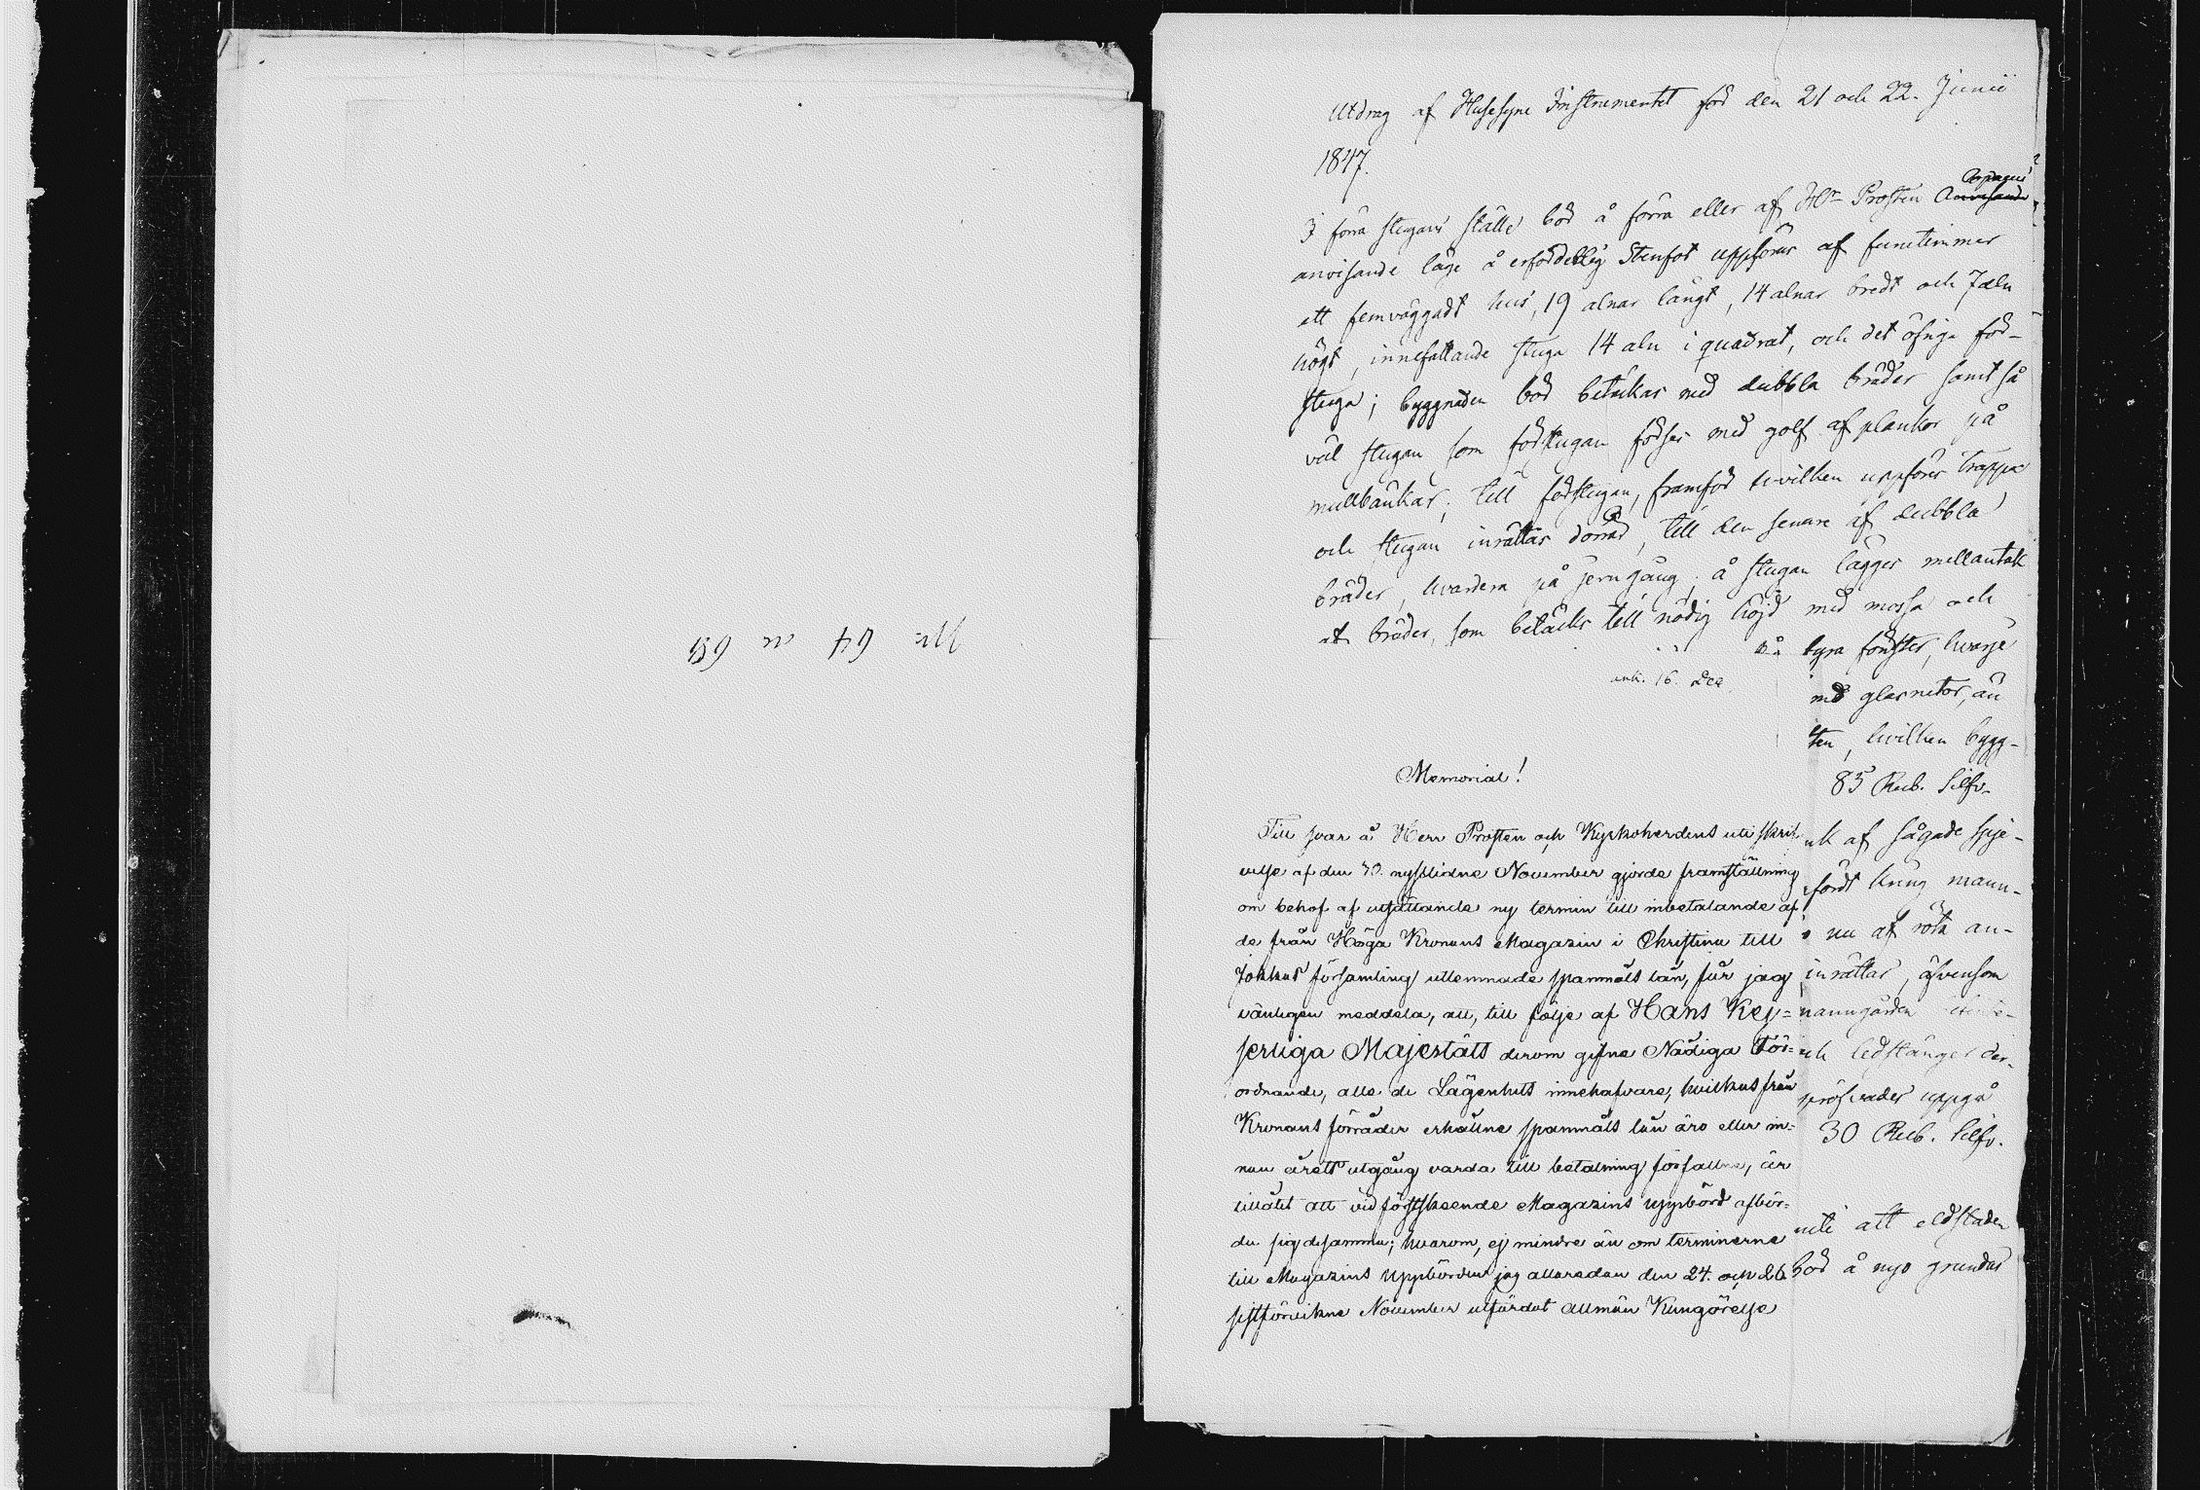 No 64 o 65
Utdrag af Husesyns Instrumentet för den 21 och 22. Junii
1847.
Aspegren
I förra stugans ställe bör å förra eller af Hr Prosten
anvisande läge å erforderlig Stenfot uppföras af furutimmer
ett femväggadt hus, 19 alnar långt, 14 alnar bredt och 7 aln
högt, innefattande stuga 14 aln i quadrat, och det öfriga för-
stuga; byggnaden bör betäckas med dubbla bräder samt så
väl stugan som förstugan förses med golf af plankor på
mullbänkar; till förstugan, framför hvilken uppföres trappa
och stugan inrättas dörrar, till den senare af dubbla
bräder, hvardera på jerngång; å stugan lägges mellantak
af bräder, som betäcks till nödig höjd med mossa och
fyra fönster, hvarje
med glasrutor, än
ten, hvilken bygg-
85 Rub. Silfv.
af sågade spje-
fördt kring mann-
nu af röta an-
inrättas, äfvensom
manngården
ledstänger der-
pröfvades uppgå
30 Rub. Silfv.
att eldstaden
bör å nyo grundas
ank. 16. Dec
Memorial!
Till svar å Herr Prosten och Kyrkoherdens uti skrif-
velse af den 30. nystlidne November gjorde framställning
om behof af utsättande ny termin till inbetalande af
de från Höga Kronans Magazin i Christina till
Jokkas församling utlemnade spannmåls lån, får jag
vänligen meddela, att, till följe af Hans Kej=
serliga Majestäts derom gifne Nådiga För=
ordnande, alla de Lägenhets innehafvare, hvilkas från
Kronans förråder erhållne spannmåls lån äro eller in=
nan årets utgång varda till betalning förfallne, är
tillåtet att vid förstskeende Magazins uppbörd afbör=
da sig desamma; hvarom, ej mindre än om terminerne
till Magazins Uppbörden jag allaredan den 24. och 26
sistförvikne November utfärdat allmän Kungörelse